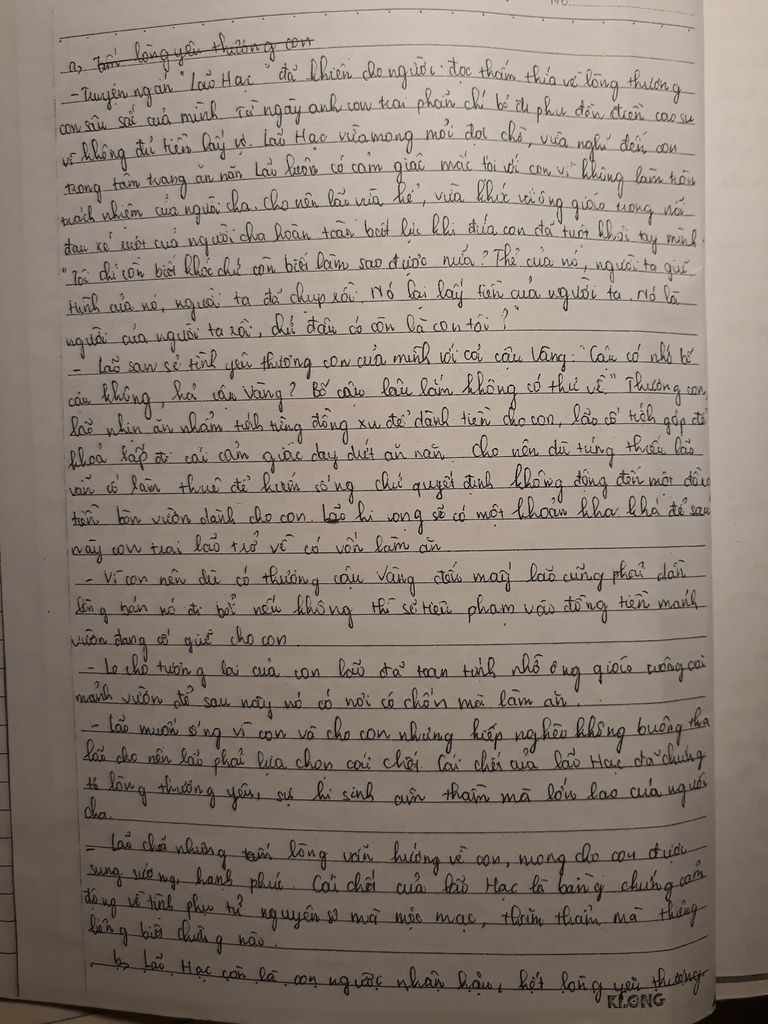 No.
a, Tấm lòng yêu thương con
- Truyện ngắn "Lão Hạc" đã khiến cho người đọc thấm thía về lòng thương
con sâu sắc của mình Từ ngày anh con trai phẫn chí bỏ đi phu đồn điền cao su
vì không đủ tiền lấy vợ. Lão Hạc vừa mong mỏi đợi chờ, vừa nghĩ đến con
trong tâm trạng ăn năn Lão luôn có cảm giác mắc tội với con vì không làm tròn
trách nhiệm của người cha. Cho nên lão vừa kể, vừa khóc với ông giáo trong nỗi
đau xé ruột của người cha hoàn toàn biết lực khi đứa con đã tuột khỏi tay mình.
"Tôi chỉ còn biết khóc chứ còn biết làm sao được nữa? Thẻ của nó, người ta giữ.
Hình của nó, người ta đã chụp rồi. Nó lại lấy tiền của người ta. Nó là
người của người ta rồi, chứ đâu có còn là con tôi?"
- Lão san sẻ tình yêu thương con của mình với cả cậu Vàng: "Cậu có nhớ bố
cậu không, hả cậu Vàng? Bố cậu lâu lắm không có thư về" Thương con,
lão nhịn ăn nhẩm tính từng đồng xu để dành tiền cho con, lão cố tích góp để
khoả lấp đi cái cảm giác day dứt ăn năn. Cho nên dù túng thiếu lão
vẫn cố làm thuê để kiếm sống chứ quyết định không động đến một đồng
tiền bòn vườn dành cho con. Lão hi vọng sẽ có một khoản kha khá để sau
này con trai lão trở về có vốn làm ăn
- Vì con nên dù có thương cậu Vàng đến mấy lão cũng phải dằn
lòng bán nó đi bởi nếu không thì sẽ tiêu phạm vào đồng tiền mảnh
vườn đang cố giữ cho con.
- Lo cho tương lai của con lão đã toan tính nhờ ông giáo trông coi
mảnh vườn để sau này nó có nơi có chốn mà làm ăn.
- Lão muốn sống vì con và cho con nhưng kiếp nghèo không buông tha
lão cho nên lão phải lựa chọn cái chết. Cái chết của lão Hạc đã chứng
tỏ lòng thương yêu, sự hi sinh âm thầm mà lớn lao của người
cha.
= Lão chết nhưng tấm lòng vẫn hướng về con, mong cho con được
sung sướng, hạnh phúc. Cái chết của lão Hạc là bằng chứng cảm
động về tình phụ tử nguyên sơ mà mộc mạc, thầm thầm mà thiêng
liêng biết chừng nào.
b, Lão Hạc còn là con người nhân hậu, hết lòng yêu thương
KLONG